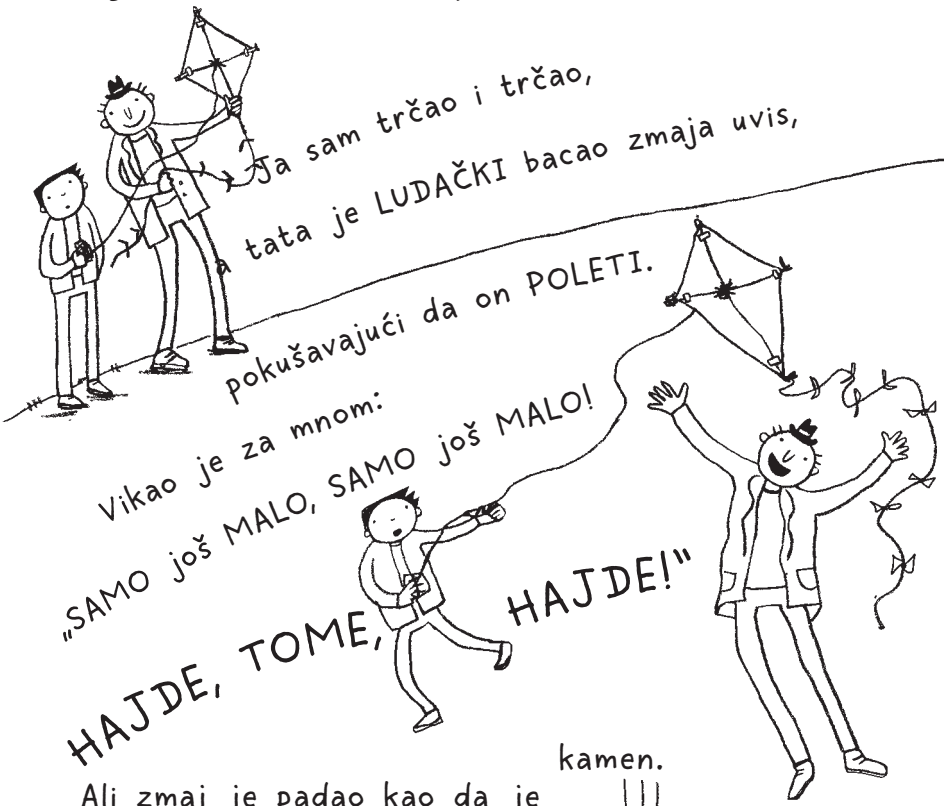 Ja sam trčao i trčao,
a tata je LUDAČKI bacao zmaja uvis,
pokušavajući da on POLETI.
Vikao je za mnom:
„SAMO još MALO, SAMO još MALO!
HAJDE, TOME, HAJDE!“
Ali zmaj je padao kao da je kamen.